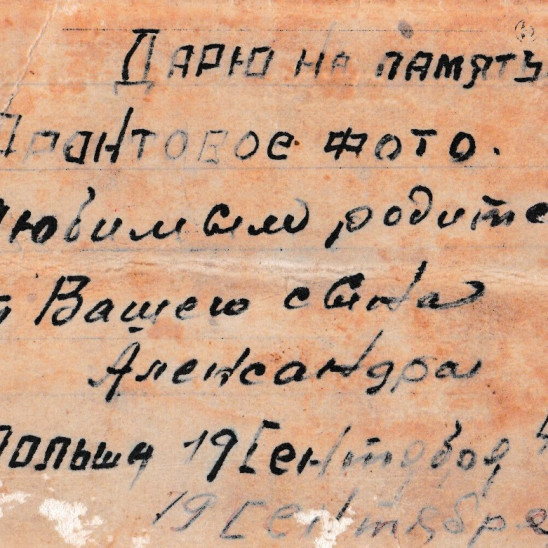 Дарю на память
Фронтовое фото.
Любимым родите
Вашего сына
Александра
Польша 19 Сентября
19 Сентября